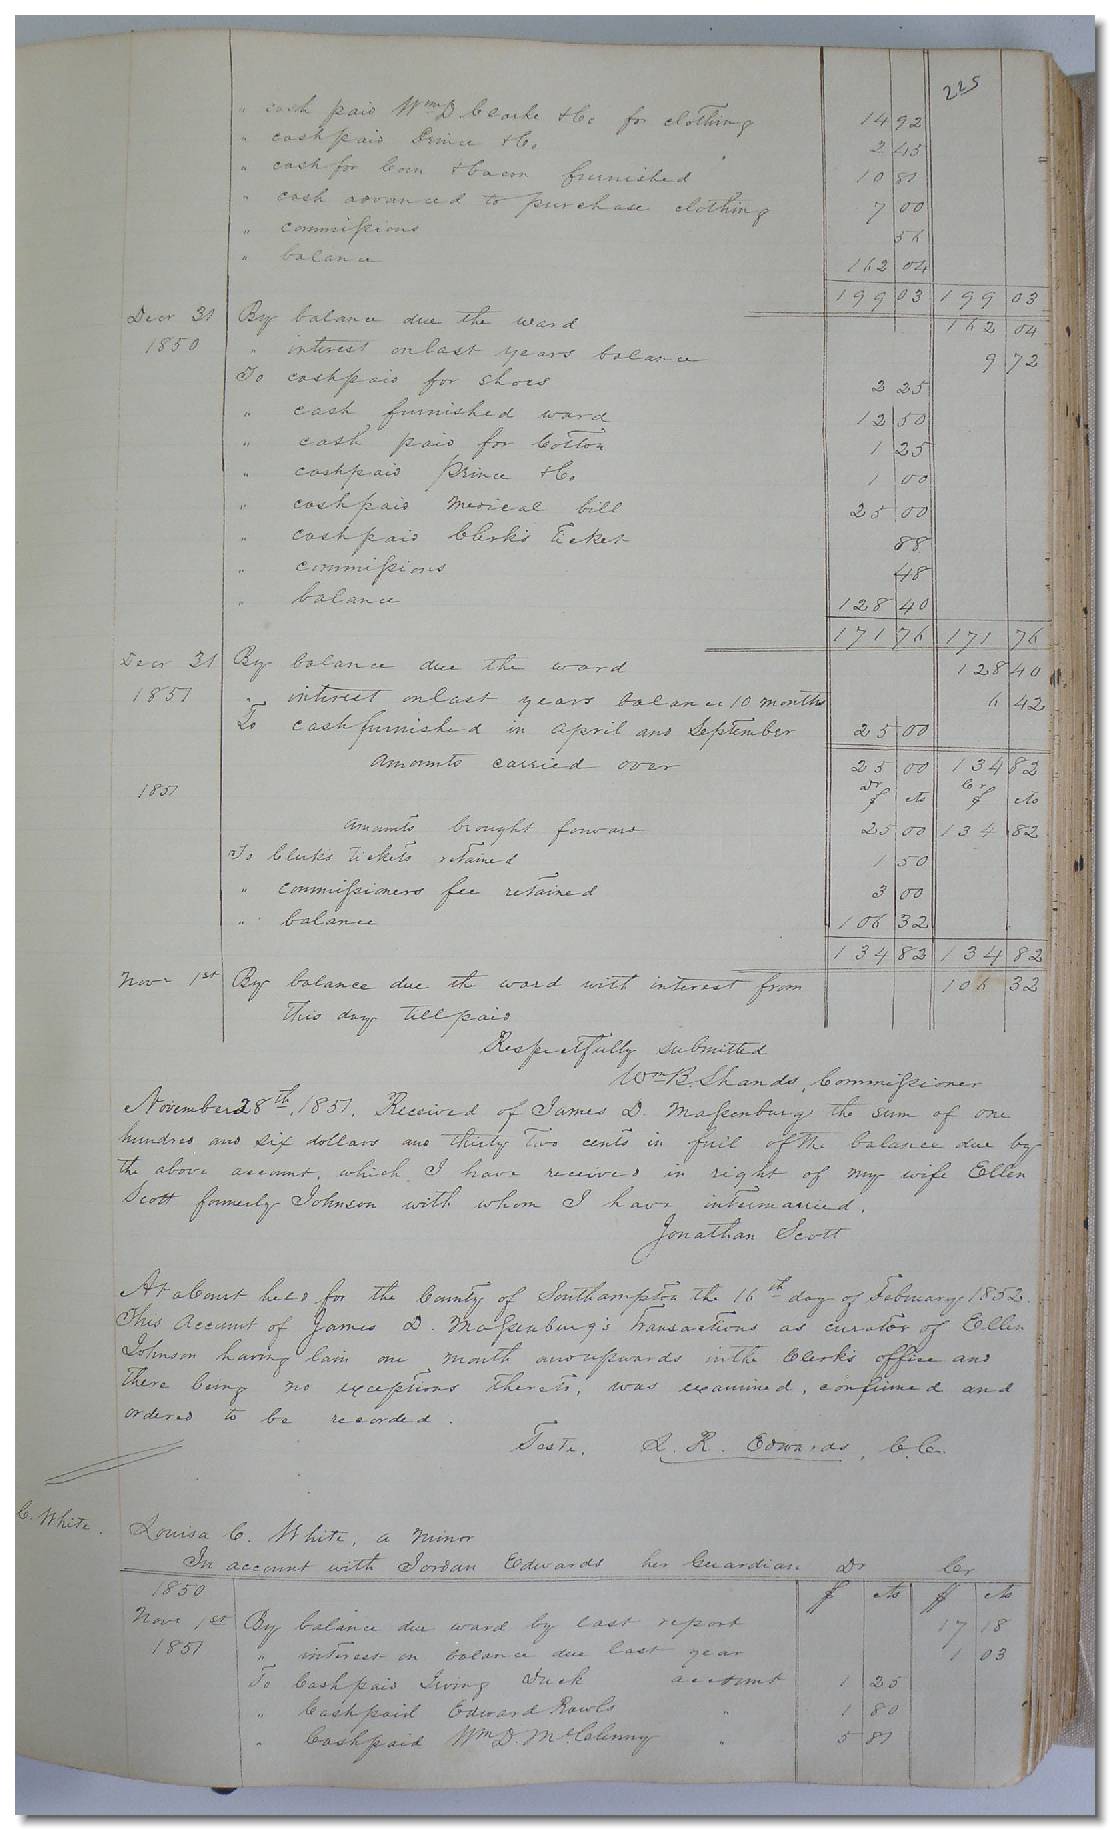 225
" cash paid Wm D. Clarke & Co for clothing 14 92
" cash paid Prince & Co. 2 45
" cash for Corn & bacon furnished 10 81
" cash advanced to purchase clothing 7 00
" commissions 56
" balance 162 04
199 03 199 03
Decr 31 By balance due the ward 162 04
1850 " interest on last years balance 9 72
To cash paid for shoes 2 25
" cash furnished ward 12 50
" cash paid for Cotton 1 25
" cash paid Prince & Co. 1 00
" cash paid medical bill 25 00
" cash paid Clerk's ticket 88
" commissions 48
" balance 128 40
171 76 171 76
Decr 31 By balance due the ward 128 40
1851 " interest on last years balance 10 months 6 42
To cash furnished in april and September 25 00
amounts carried over 25 00 134 82
1851 Dr Cr
$ cts $ cts
amounts brought forward 25 00 134 82
To Clerk's tickets retained 1 50
" commissioners fee retained 3 00
" balance 106 32
134 82 134 82
Nove 1st By balance due the ward with interest from 106 32
this day till paid
Respectfully submitted
Wm B. Shands, Commissioner
November 28th, 1851. Received of James D. Massenburg the sum of one
hundred and six dollars and thirty two cents in full of the balance due by
the above account, which I have received in right of my wife Ellen
Scott formerly Johnson with whom I have intermarried.
Jonathan Scott
At a Court held for the County of Southampton the 16th day of February 1852.
This Account of James D. Massenburg's transactions as curator of Ellen
Johnson having lain one month and upwards in the Clerk's office and
there being no exceptions thereto, was examined, confirmed and
ordered to be recorded.
Teste, L. R. Edwards, C.C.
C. White.
Louisa C. White, a minor
In account with Jordan Edwards her Guardian Dr Cr
1850 $ cts $ cts
Nove 1st By balance due ward by last report 17 18
1851 " interest on balance due last year 1 03
To Cash paid Irving Duck account 1 25
" Cash paid Edward Rawls " 1 80
" Cash paid Wm D. McClenny " 5 81